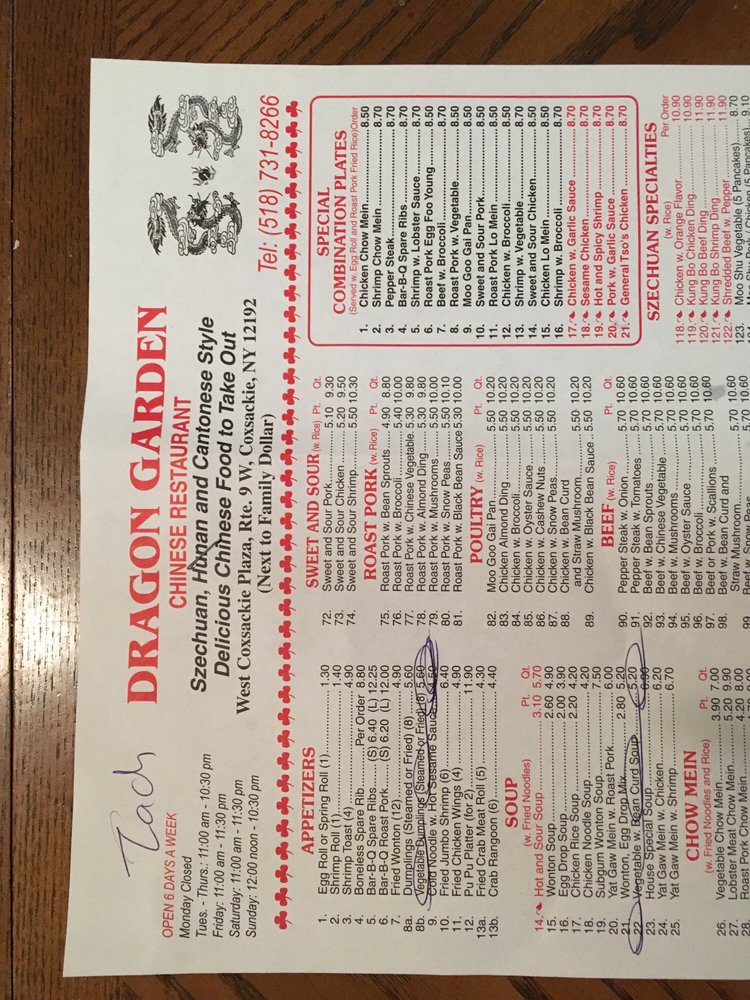 Zach
DRAGON GARDEN
CHINESE RESTAURANT
Szechuan, Hunan and Cantonese Style
Delicious Chinese Food to Take Out
West Coxsackie Plaza, Rte. 9 W, Coxsackie, NY 12192
(Next to Family Dollar)
Tel: (518) 731-8266
OPEN 6 DAYS A WEEK
Monday Closed
Tues. - Thurs.: 11:00 am - 10:30 pm
Friday: 11:00 am - 11:30 pm
Saturday: 11:00 am - 11:30 pm
Sunday: 12:00 noon - 10:30 pm
APPETIZERS
1. Egg Roll or Spring Roll (1) 1.30
2. Shrimp Roll (1) 1.40
3. Shrimp Toast (4) 4.90
4. Boneless Spare Rib Per Order 8.80
5. Bar-B-Q Spare Ribs (S) 6.40 (L) 12.25
6. Bar-B-Q Roast Pork (S) 6.20 (L) 12.00
7. Fried Wonton (12) 4.90
8a. Dumplings (Steamed or Fried) (8) 5.60
8b. Vegetable Dumplings (Steamed or Fried) (8) 5.60
9. Cold Noodle w. Hot Sesame Sauce 4.50
10. Fried Jumbo Shrimp (6) 6.40
11. Fried Chicken Wings (4) 4.90
12. Pu Pu Platter (for 2) 11.90
13a. Fried Crab Meat Roll (5) 4.30
13b. Crab Rangoon (6) 4.40
SOUP
(w. Fried Noodles) Pt. Qt.
14. Hot and Sour Soup 3.10 5.70
15. Wonton Soup 2.60 4.90
16. Egg Drop Soup 2.00 3.90
17. Chicken Rice Soup 2.20 4.20
18. Chicken Noodle Soup 2.20 4.20
19. Subgum Wonton Soup 7.50
20. Yat Gaw Mein w. Roast Pork 6.00
21. Wonton, Egg Drop Mix 2.80 5.20
22. Vegetable w. Bean Curd Soup 5.20
23. House Special Soup 6.90
24. Yat Gaw Mein w. Chicken 6.20
25. Yat Gaw Mein w. Shrimp 6.70
CHOW MEIN
(w. Fried Noodles and Rice) Pt. Qt.
26. Vegetable Chow Mein 3.90 7.00
27. Lobster Meat Chow Mein 5.20 9.90
28. Roast Pork Chow Mein 4.20 8.00
SWEET AND SOUR (w. Rice) Pt. Qt.
72. Sweet and Sour Pork 5.10 9.30
73. Sweet and Sour Chicken 5.20 9.50
74. Sweet and Sour Shrimp 5.50 10.30
ROAST PORK (w. Rice) Pt. Qt.
75. Roast Pork w. Bean Sprouts 4.90 8.80
76. Roast Pork w. Broccoli 5.40 10.00
77. Roast Pork w. Chinese Vegetable 5.30 9.80
78. Roast Pork w. Almond Ding 5.30 9.80
79. Roast Pork w. Mushrooms 5.50 10.00
80. Roast Pork w. Snow Peas 5.50 10.10
81. Roast Pork w. Black Bean Sauce 5.30 10.00
POULTRY (w. Rice) Pt. Qt.
82. Moo Goo Gai Pan 5.50 10.20
83. Chicken Almond Ding 5.50 10.20
84. Chicken w. Broccoli 5.50 10.20
85. Chicken w. Oyster Sauce 5.50 10.20
86. Chicken w. Cashew Nuts 5.50 10.20
87. Chicken w. Snow Peas 5.50 10.20
88. Chicken w. Bean Curd
and Straw Mushroom 5.50 10.20
89. Chicken w. Black Bean Sauce 5.50 10.20
BEEF (w. Rice) Pt. Qt.
90. Pepper Steak w. Onion 5.70 10.60
91. Pepper Steak w. Tomatoes 5.70 10.60
92. Beef w. Bean Sprouts 5.70 10.60
93. Beef w. Chinese Vegetable 5.70 10.60
94. Beef w. Mushrooms 5.70 10.60
95. Beef w. Oyster Sauce 5.70 10.60
96. Beef w. Broccoli 5.70 10.60
97. Beef or Pork w. Scallions 5.70 10.60
98. Beef w. Bean Curd and
Straw Mushroom 5.70 10.60
99. Beef w. Snow Peas 5.70 10.60
SPECIAL
COMBINATION PLATES
(Served w. Egg Roll and Roast Pork Fried Rice) Order
1. Chicken Chow Mein 8.50
2. Shrimp Chow Mein 8.70
3. Pepper Steak 8.70
4. Bar-B-Q Spare Ribs 8.70
5. Shrimp w. Lobster Sauce 8.70
6. Roast Pork Egg Foo Young 8.50
7. Beef w. Broccoli 8.70
8. Roast Pork w. Vegetable 8.50
9. Moo Goo Gai Pan 8.50
10. Sweet and Sour Pork 8.50
11. Roast Pork Lo Mein 8.50
12. Chicken w. Broccoli 8.50
13. Shrimp w. Vegetable 8.70
14. Sweet and Sour Chicken 8.50
15. Chicken Lo Mein 8.50
16. Shrimp w. Broccoli 8.70
17. Chicken w. Garlic Sauce 8.70
18. Sesame Chicken 8.70
19. Hot and Spicy Shrimp 8.70
20. Pork w. Garlic Sauce 8.70
21. General Tso's Chicken 8.70
SZECHUAN SPECIALTIES
(w. Rice) Per Order
118. Chicken w. Orange Flavor 10.90
119. Kung Bo Chicken Ding 10.90
120. Kung Bo Beef Ding 11.90
121. Kung Bo Shrimp Ding 11.90
122. Shredded Beef w. Pepper 11.90
123. Moo Shu Vegetable (5 Pancakes) 8.70